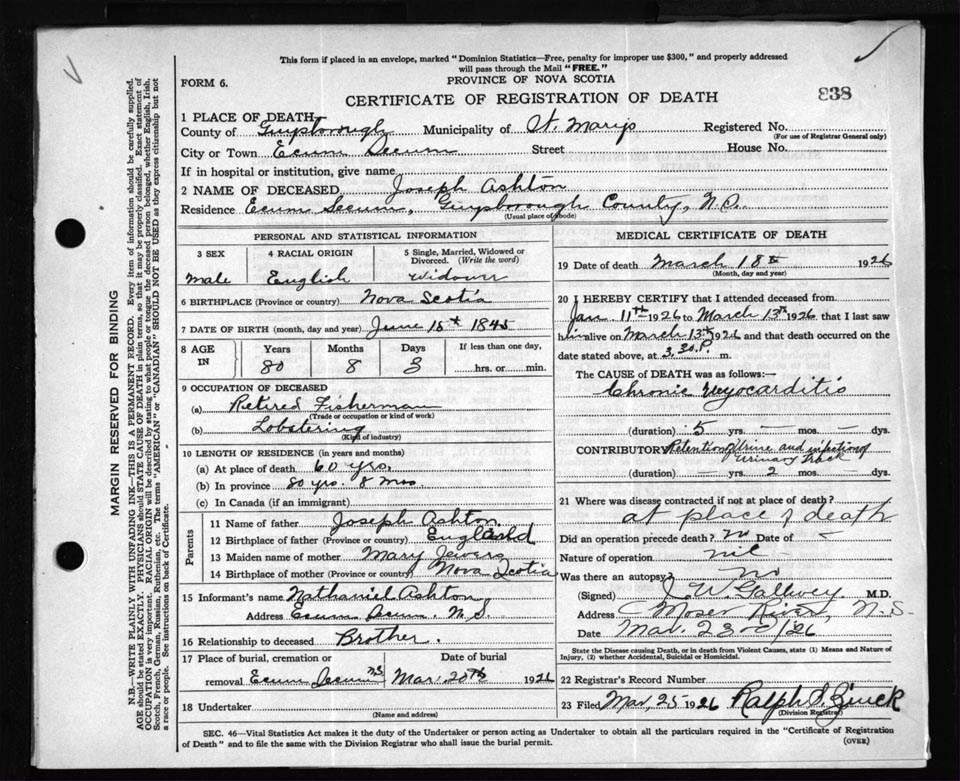 This form if placed in an envelope, marked "Dominion Statistics—Free, penalty for improper use $300," and properly addressed
will pass through the Mail "FREE."
FORM 6.
PROVINCE OF NOVA SCOTIA
838
CERTIFICATE OF REGISTRATION OF DEATH
1 PLACE OF DEATH
County of Guysborough Municipality of St. Marys Registered No.
(For use of Registrar General only)
City or Town Ecum Secum Street House No.
If in hospital or institution, give name
2 NAME OF DECEASED Joseph Ashton
Residence Ecum Secum, Guysborough County, N.S.
(Usual place of abode)
PERSONAL AND STATISTICAL INFORMATION
3 SEX 4 RACIAL ORIGIN 5 Single, Married, Widowed or Divorced. (Write the word)
male English widower
6 BIRTHPLACE (Province or country) Nova Scotia
7 DATE OF BIRTH (month, day and year) June 15th 1845
8 AGE IN Years Months Days If less than one day,
80 8 3 hrs. or min.
9 OCCUPATION OF DECEASED
(a) Retired Fisherman
(Trade or occupation or kind of work)
(b) Lobstering
(Kind of industry)
10 LENGTH OF RESIDENCE (in years and months)
(a) At place of death 60 yrs.
(b) In province 80 yrs. 8 mos
(c) In Canada (if an immigrant)
Parents
11 Name of father Joseph Ashton
12 Birthplace of father (Province or country) England
13 Maiden name of mother Mary Jewers
14 Birthplace of mother (Province or country) Nova Scotia
15 Informant's name Nathaniel Ashton
Address Ecum Secum, N.S.
16 Relationship to deceased Brother.
17 Place of burial, cremation or Date of burial
removal Ecum Secum N.S Mar. 20th 1926
18 Undertaker
(Name and address)
MEDICAL CERTIFICATE OF DEATH
19 Date of death March 18th 1926
(Month, day and year)
20 I HEREBY CERTIFY that I attended deceased from
Jan 11th 1926 to March 13th 1926 that I last saw
him alive on March 13th 1926 and that death occurred on the
date stated above, at 3.30 P. m.
The CAUSE of DEATH was as follows:—
Chronic Myocarditis
(duration) 5 yrs. — mos. — dys.
CONTRIBUTORY Retention of Urine and infection of
Urinary Tract
(duration) — yrs. 2 mos. dys.
21 Where was disease contracted if not at place of death?
at place of death
Did an operation precede death? no Date of —
Nature of operation nil
Was there an autopsy? no
(Signed) J W Gallwey M.D.
Address Moser River, N.S.
Date Mar. 23 1926
State the Disease causing Death, or in death from Violent Causes, state (1) Means and Nature of
Injury, (2) whether Accidental, Suicidal or Homicidal.
22 Registrar's Record Number
23 Filed Mar, 25 1926 Ralph S. Zinck
(Division Registrar)
SEC. 46—Vital Statistics Act makes it the duty of the Undertaker or person acting as Undertaker to obtain all the particulars required in the "Certificate of Registration
of Death" and to file the same with the Division Registrar who shall issue the burial permit. (OVER)
MARGIN RESERVED FOR BINDING
N.B.—WRITE PLAINLY WITH UNFADING INK—THIS IS A PERMANENT RECORD. Every item of information should be carefully supplied.
AGE should be stated EXACTLY. PHYSICIANS should STATE CAUSE OF DEATH in plain terms, so that it may be properly classified. Exact statement of
OCCUPATION is very important. RACIAL ORIGIN will be described by stating to what people or tongue the deceased person belonged, whether English, Irish,
Scotch, French, German, Russian, Ruthenian, etc. The terms "AMERICAN" or "CANADIAN" SHOULD NOT BE USED as they express citizenship but not
a race or people. See instructions on back of Certificate.